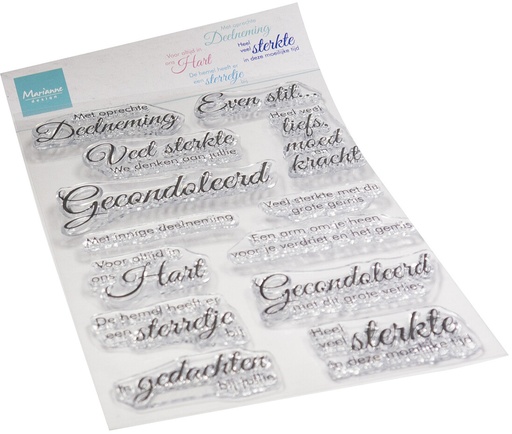 Marianne
design
Met oprechte
Deelneming
Voor altijd in
ons Hart
Heel
veel sterkte
in deze moeilijke tijd
De hemel heeft er
een sterretje
Met oprechte
Deelneming
Even stil...
Veel sterkte
We denken aan jullie
Heel veel
liefs,
moed
kracht
Gecondoleerd
Veel sterkte met dit
grote gemis
Met innige deelneming
Een arm om je heen
voor je verdriet en het gemis
Voor altijd in
ons Hart
Gecondoleerd
met dit grote verlies
De hemel heeft er
een sterretje
Heel
veel sterkte
in deze moeilijke tijd
In gedachten
bij jullie